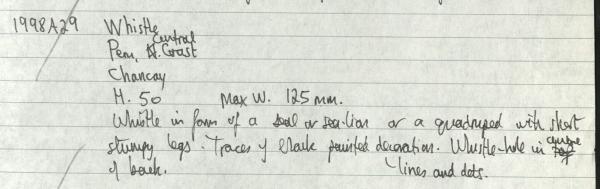 1998A29 Whistle
Peru, Central Coast
Chancay
H. 50 Max W. 125 mm.
Whistle in form of a seal or sea-lion or a quadruped with short
stumpy legs. Traces of black painted decoration. Whistle-hole in centre
of back. lines and dots.